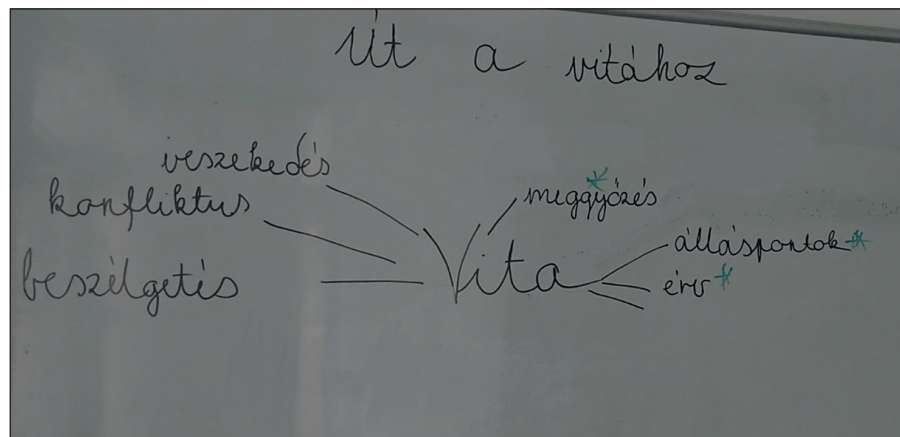 Út a vitához
veszekedés
konfliktus
beszélgetés
Vita
meggyőzés
álláspontok *
érv *